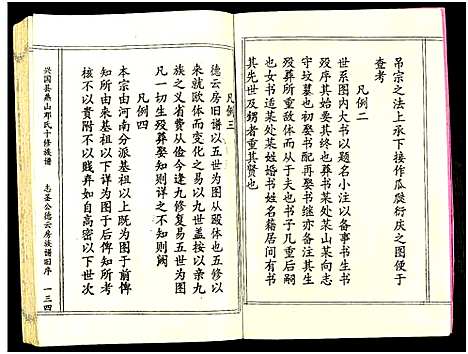 吊宗之法上承下接作瓜瓞衍庆之图便于
查考
凡例二
世系图内大书以题名小注以备事书生书
殁序其始要其终也书葬某处某山某向志
守坟墓也书初娶书配再娶书继亦备书注
殁葬所重欧体而从于夫也书子几重后嗣
也女书适某处某姓婚书姓名藉居间有书
其先世及甥者重其贤也
凡例三
德云房旧谱以五世为图从颐体也五修以
来就欧体而变化之易以九世盖按以亲九
族之义省费从俭今逢九修复易五世为图
凡一切生殁葬娶知则详之不知则阙
凡例四
本宗由河南分派基祖以上既为图于前俾
知所由来基祖以下以德云房后俾知所考
核不以贵附不以贱弃如自高密以下世次
兴国县燕山邓氏十修族谱
志圣公德云房族谱旧序
一三四